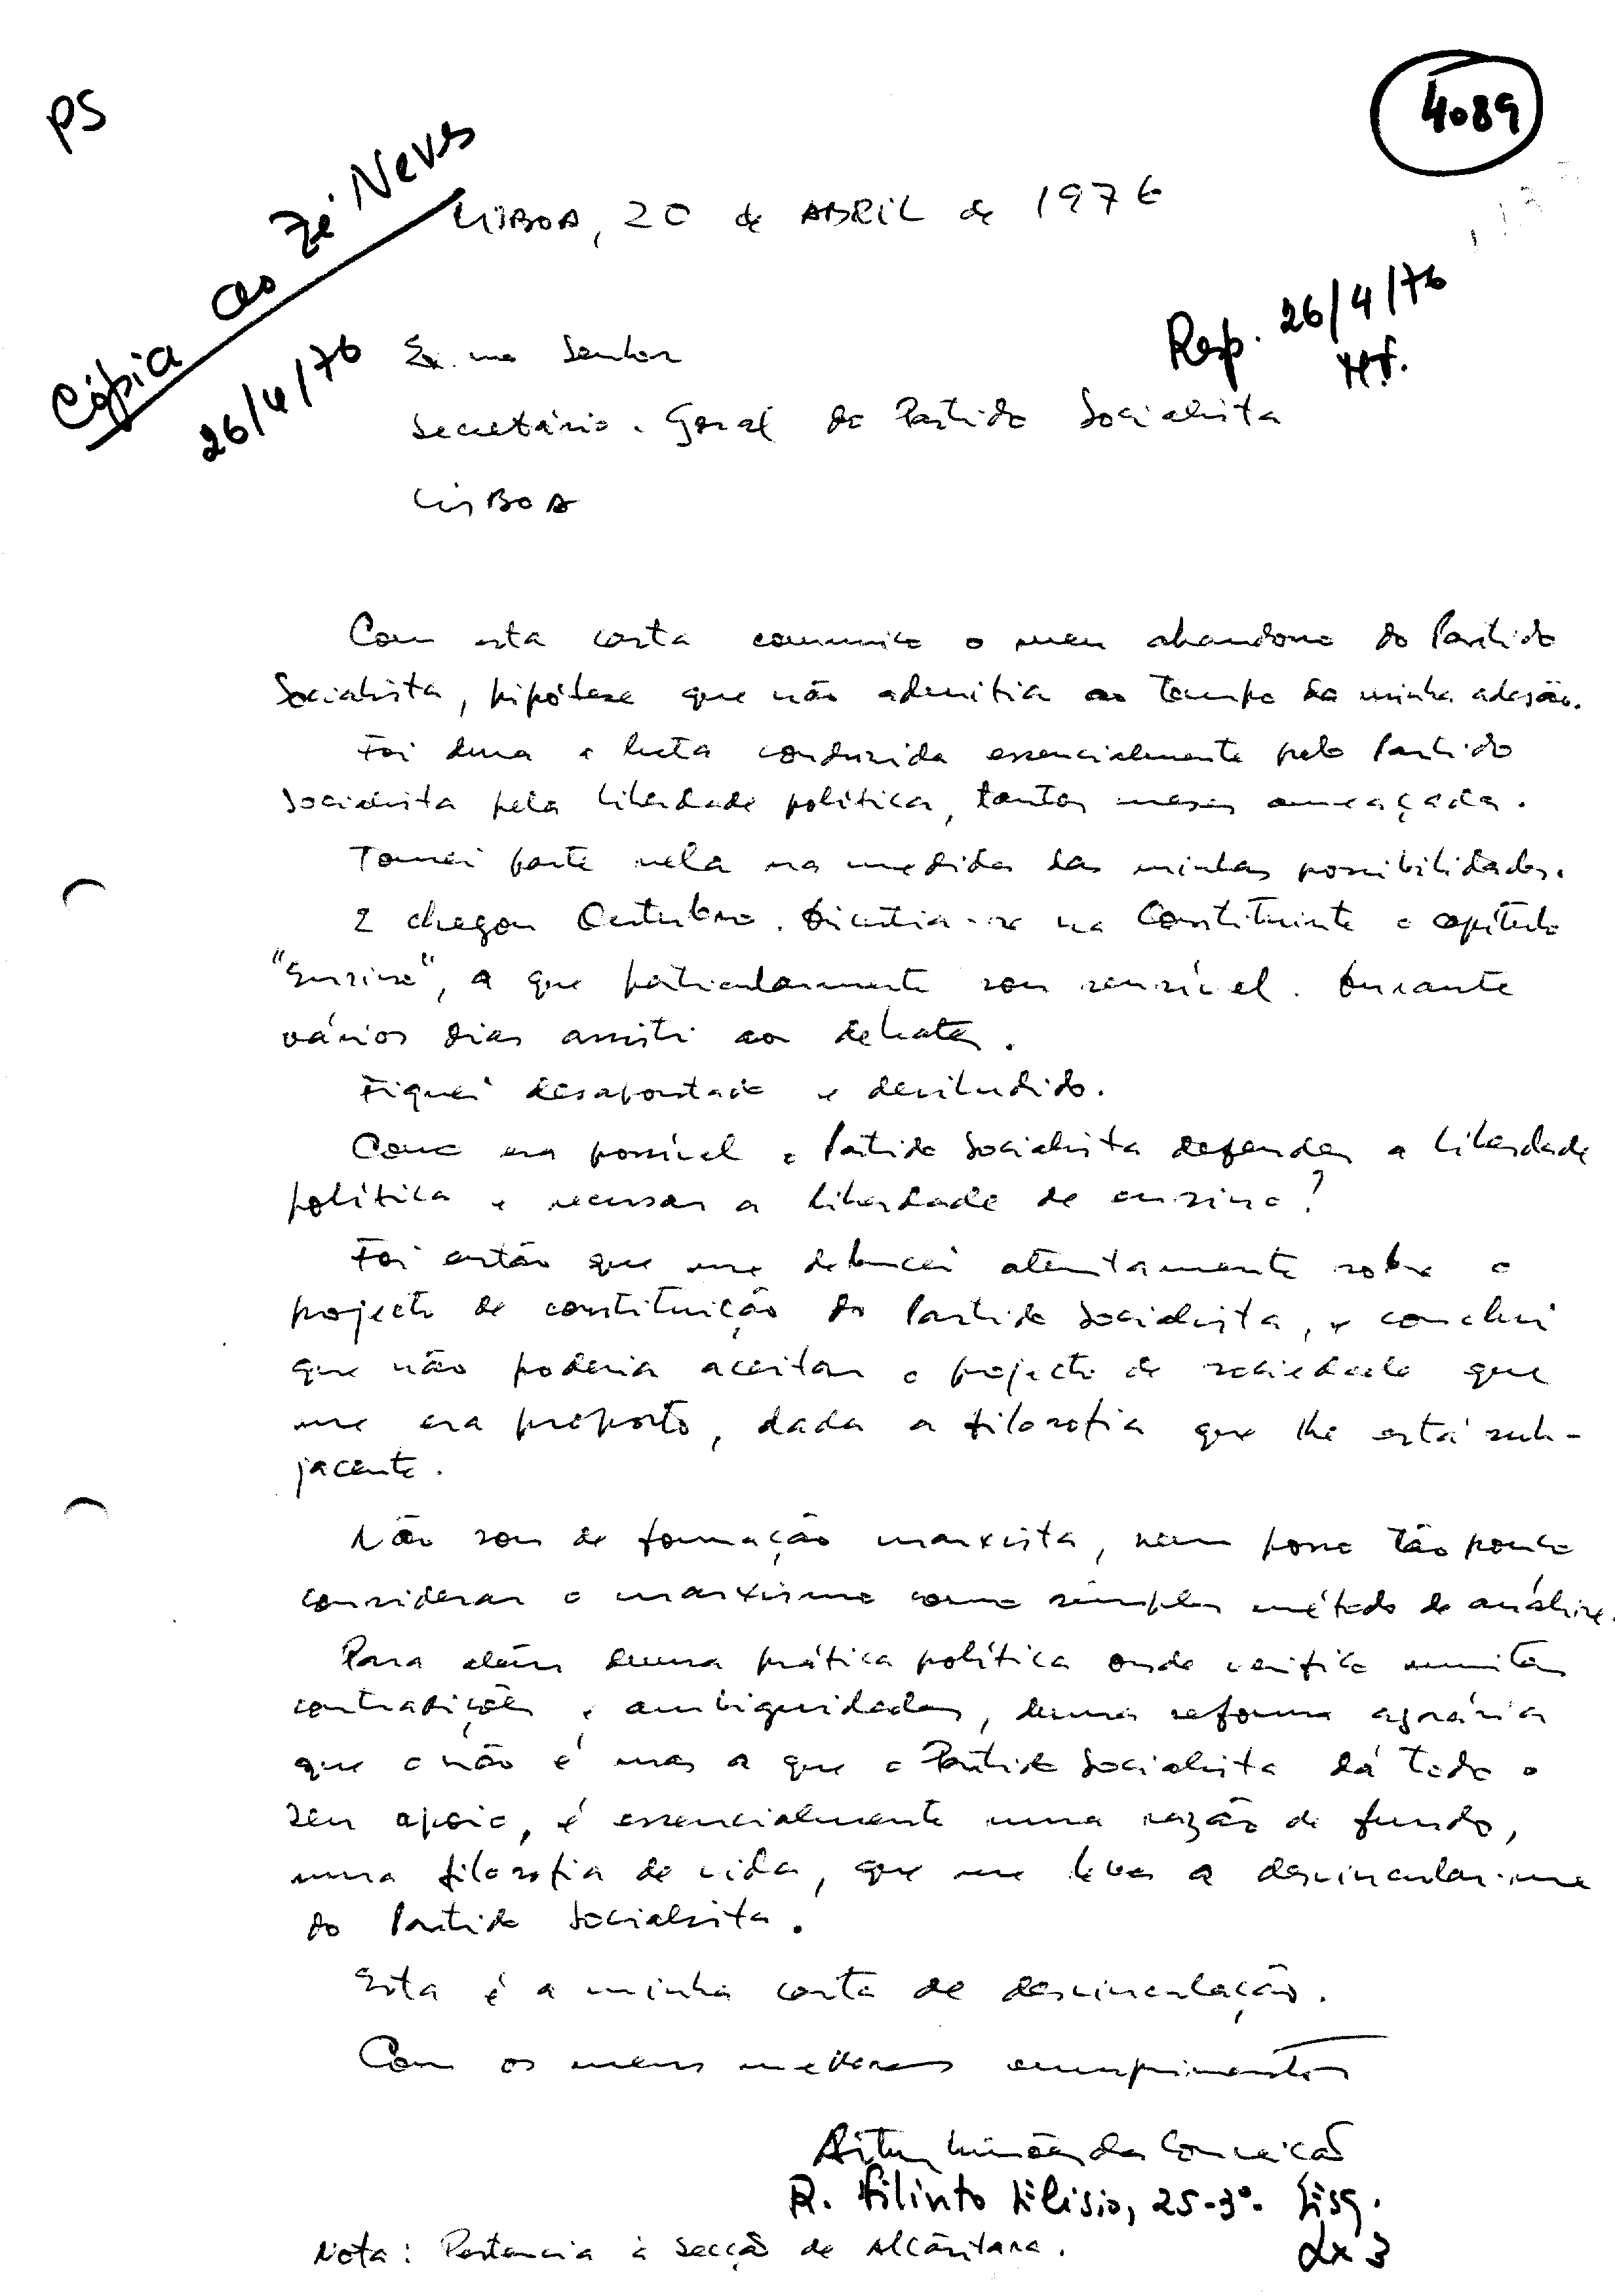 PS
4089
Cópia ao Zé Neves
26/4/76
LISBOA, 20 de ABRIL de 1976
Resp. 26/4/76
Ex.mo Senhor
Secretário-Geral do Partido Socialista
LISBOA
Com esta carta comunico o meu abandono do Partido
Socialista, hipótese que não admitia ao tempo da minha adesão.
Foi dura a luta conduzida essencialmente pelo Partido
Socialista pela liberdade política, tantos meses ameaçada.
Tomei parte nela na medida das minhas possibilidades.
E chegou Outubro. Discutia-se na Constituinte o capítulo
"Ensino", a que particularmente sou sensível. Durante
vários dias assisti aos debates.
Fiquei desapontado e desiludido.
Como era possível o Partido Socialista defender a liberdade
política e recusar a liberdade de ensino?
Foi então que me debrucei atentamente sobre o
projecto de constituição do Partido Socialista, e conclui
que não poderia aceitar o projecto de sociedade que
me era proposto, dada a filosofia que lhe está sub-
jacente.
Não sou de formação marxista, nem posso tão pouco
considerar o marxismo como simples método de análise.
Para além duma prática política onde verifico muitas
contradições e ambiguidades, duma reforma agrária
que o não é mas a que o Partido Socialista dá todo o
seu apoio, é essencialmente uma razão de fundo,
uma filosofia de vida, que me leva a desvincular-me
do Partido Socialista.
Esta é a minha carta de desvinculação.
Com os meus melhores cumprimentos
da Conceição
R. Filinto Elísio, 25-3º- Esq.
Lx 3
Nota: Pertencia à Secção de Alcântara.